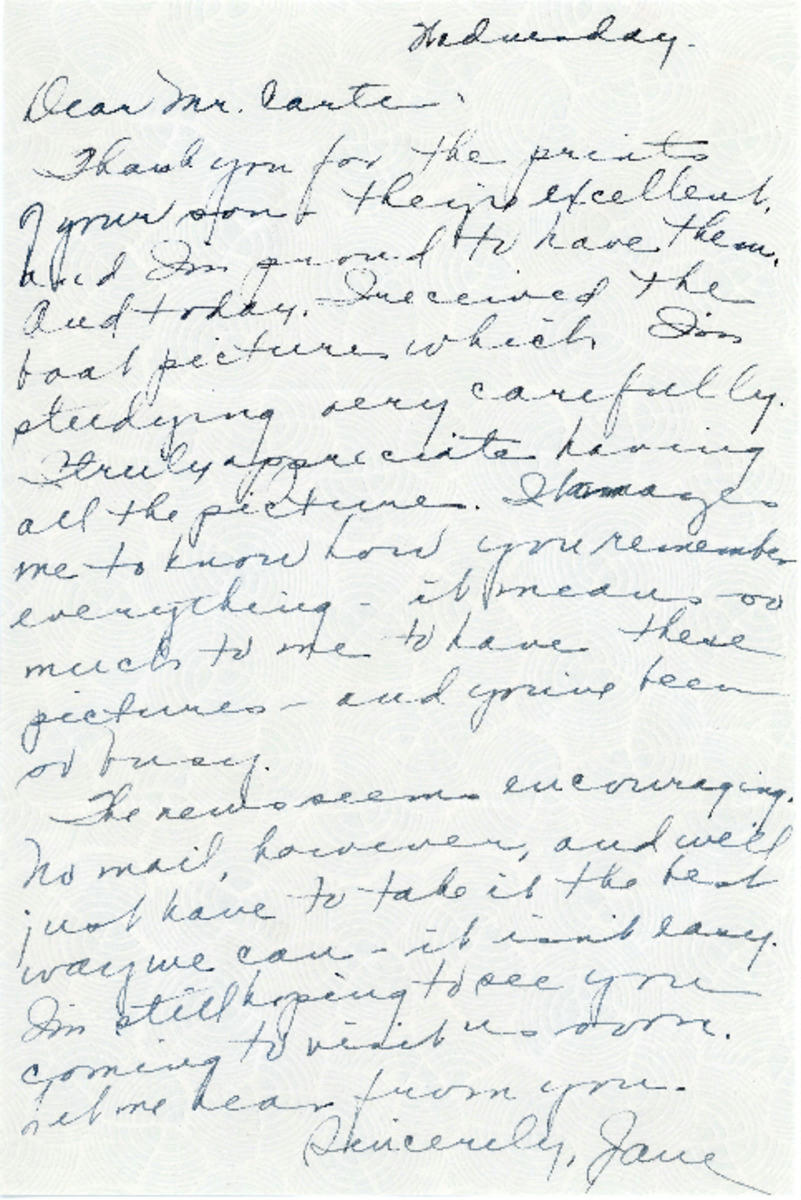 Wednesday.
Dear Mr. Carter:
Thank you for the prints
of your son - their excellent,
and I'm proud to have them.
And today, I received the
boat pictures which I'm
studying very carefully.
I truly appreciate having
all the pictures. It amazes
me to know how you remember
everything - it means so
much to me to have these
pictures - and you've been
so busy.
The news seems encouraging.
No mail, however, and we'll
just have to take it the best
way we can - it isn't easy.
I'm still hoping to see you
coming to visit us soon.
Let me hear from you.
Sincerely, Jane